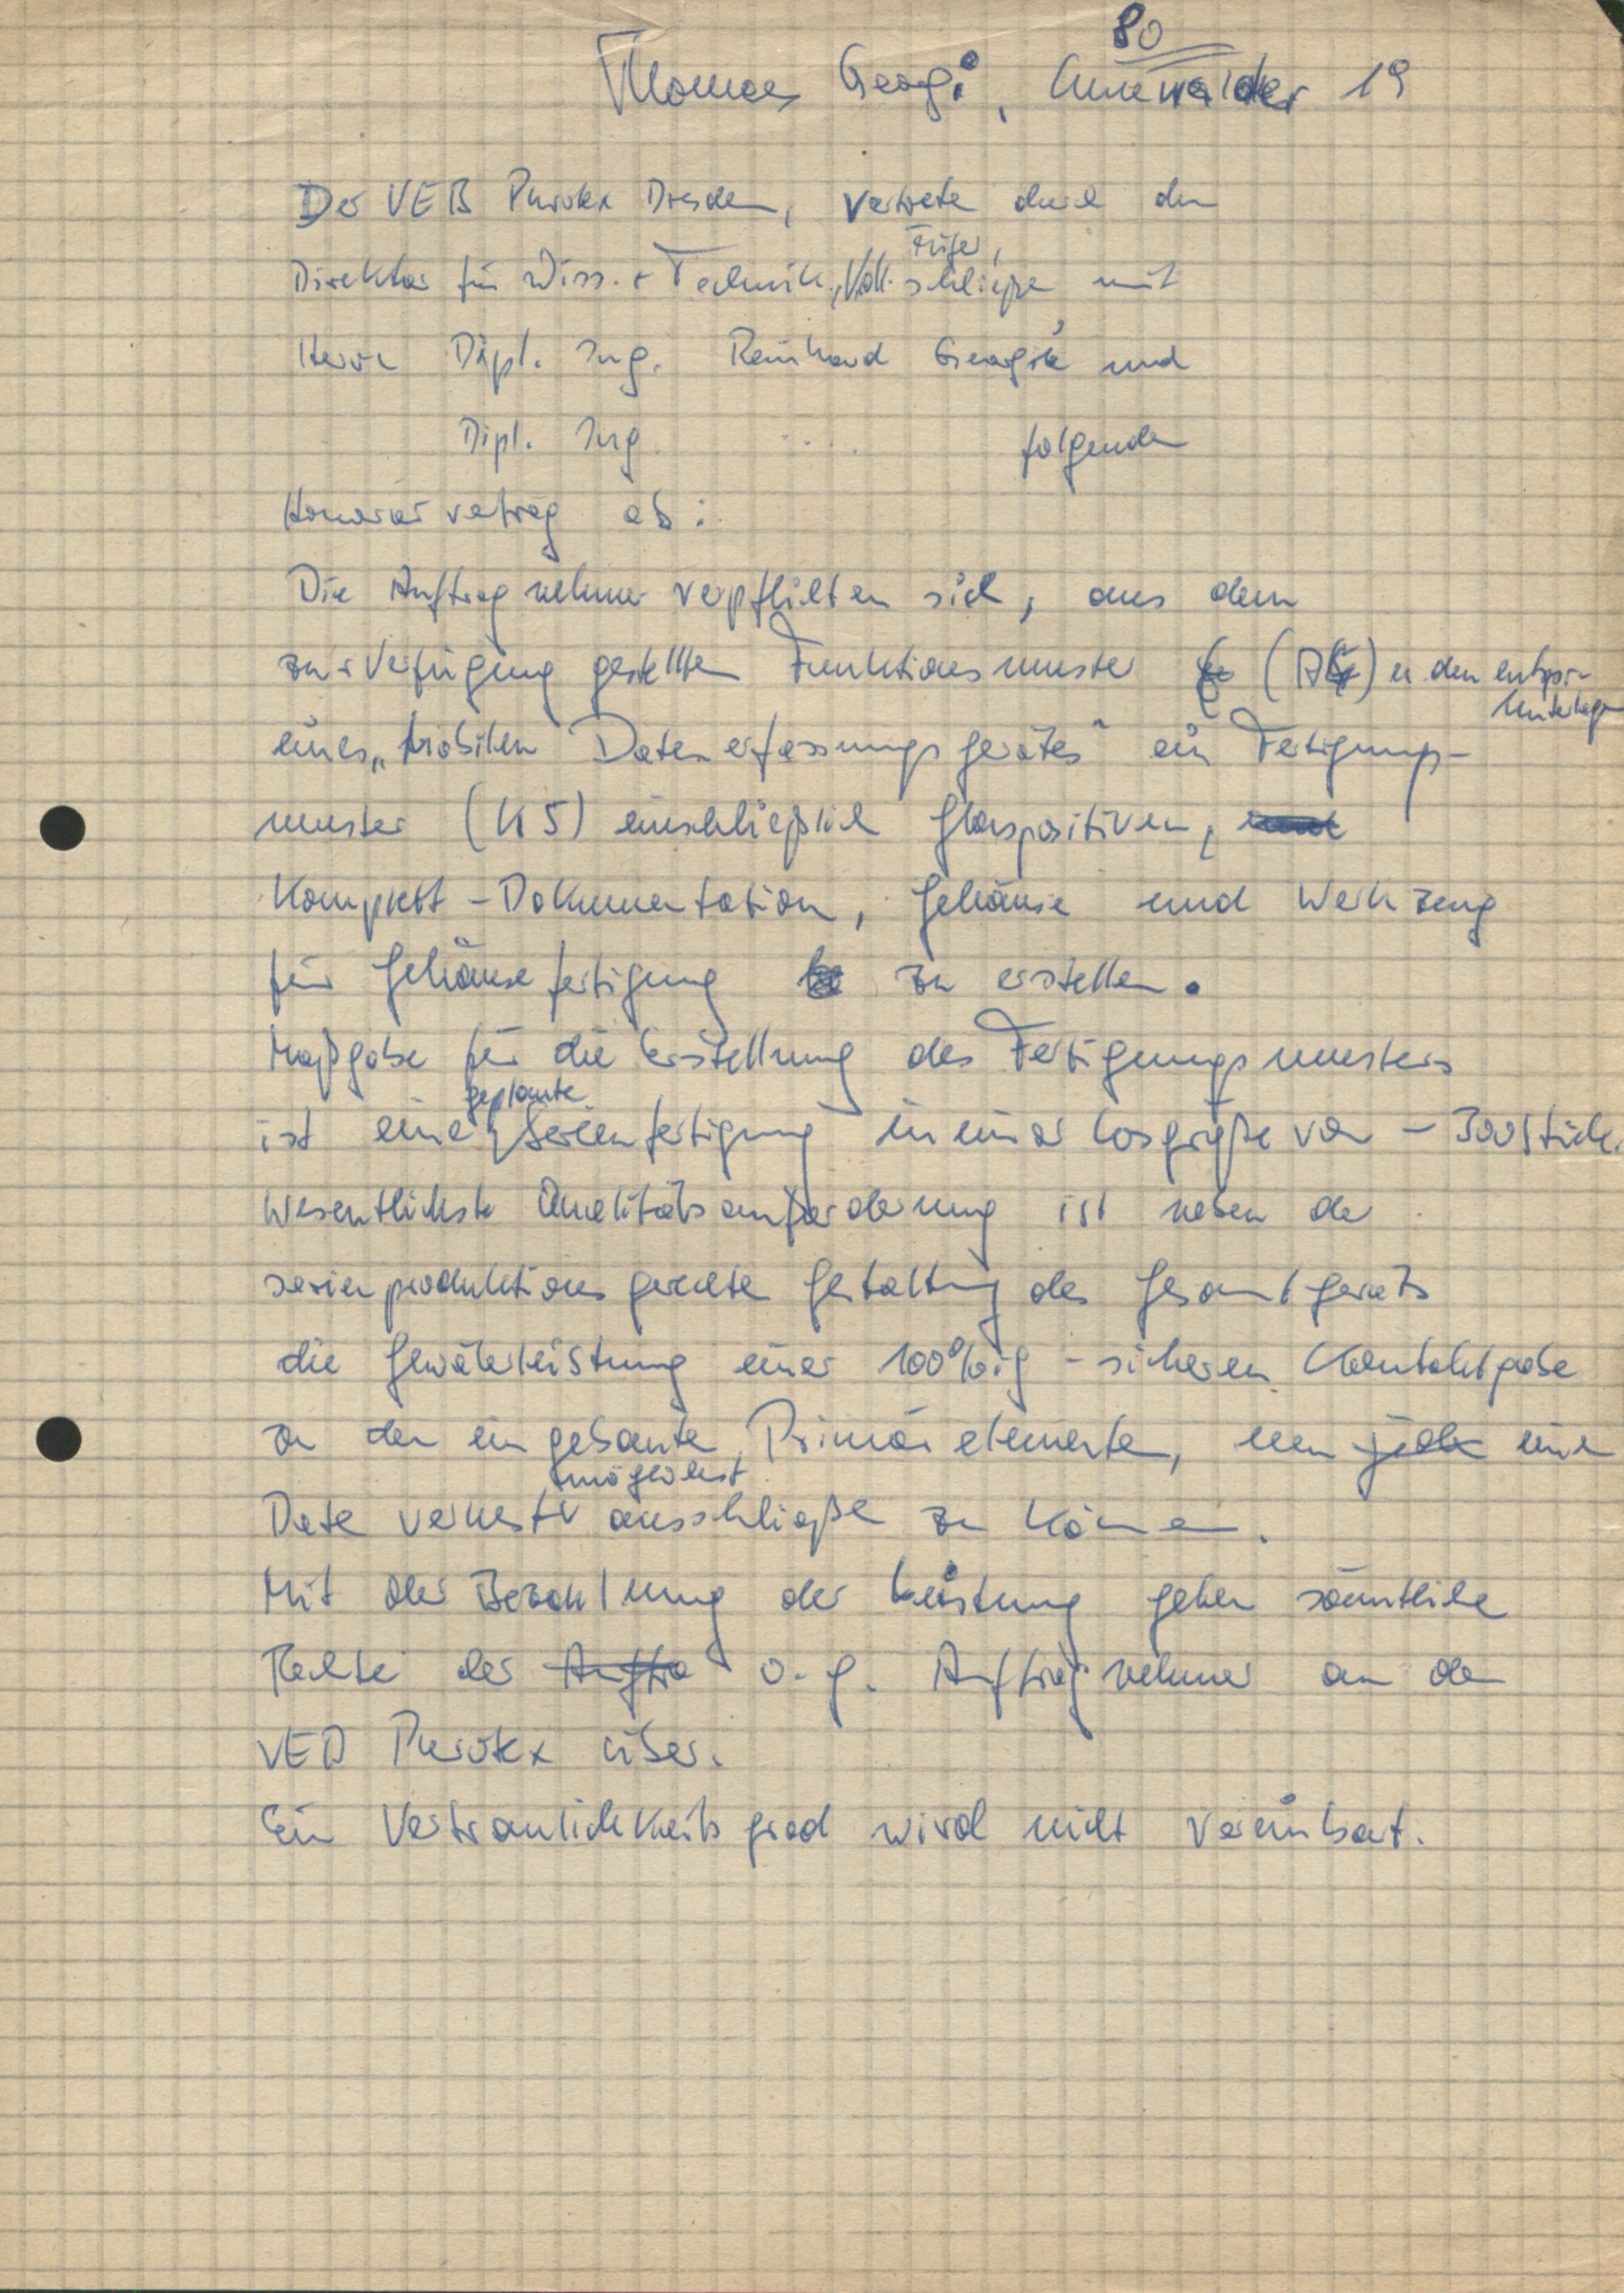 80
Thomas Georgi, 19
Der VEB Purotex Dresden, vertreten durch den
Füger,
Direktor für Wiss. + Technik, Koll. schließen mit
Herrn Dipl. Ing. Reinhard Georgi und
Dipl. Ing. .... folgenden
Honorarvertrag ab:
Die Auftragnehmer verpflichten sich, aus dem
zur Verfügung gestellten Funktionsmuster (A4) u. den entspr.
Unterlagen
eines „mobilen Datenerfassungsgerätes" ein Fertigungs-
muster (K5) einschließlich Glaspositiven,
Komplett-Dokumentation, Gehäuse und Werkzeug
für Gehäusefertigung zu erstellen.
Maßgabe für die Erstellung des Fertigungsmusters
geplante
ist eine Serienfertigung in einer Losgröße von ~ 300 Stück.
Wesentlichste Qualitätsanforderung ist neben der
serienproduktionsgerechten Gestaltung des Gesamtgeräts
die Gewährleistung einer 100%ig-sicheren Kontaktgabe
zu den eingebauten Primärelementen, um jede einen
möglichst
Datenverlust ausschließen zu können.
Mit der Bezahlung der Leistung gehen sämtliche
Rechte der Auftra o. g. Auftragnehmer an den
VEB Purotex über.
Ein Vertraulichkeitsgrad wird nicht vereinbart.